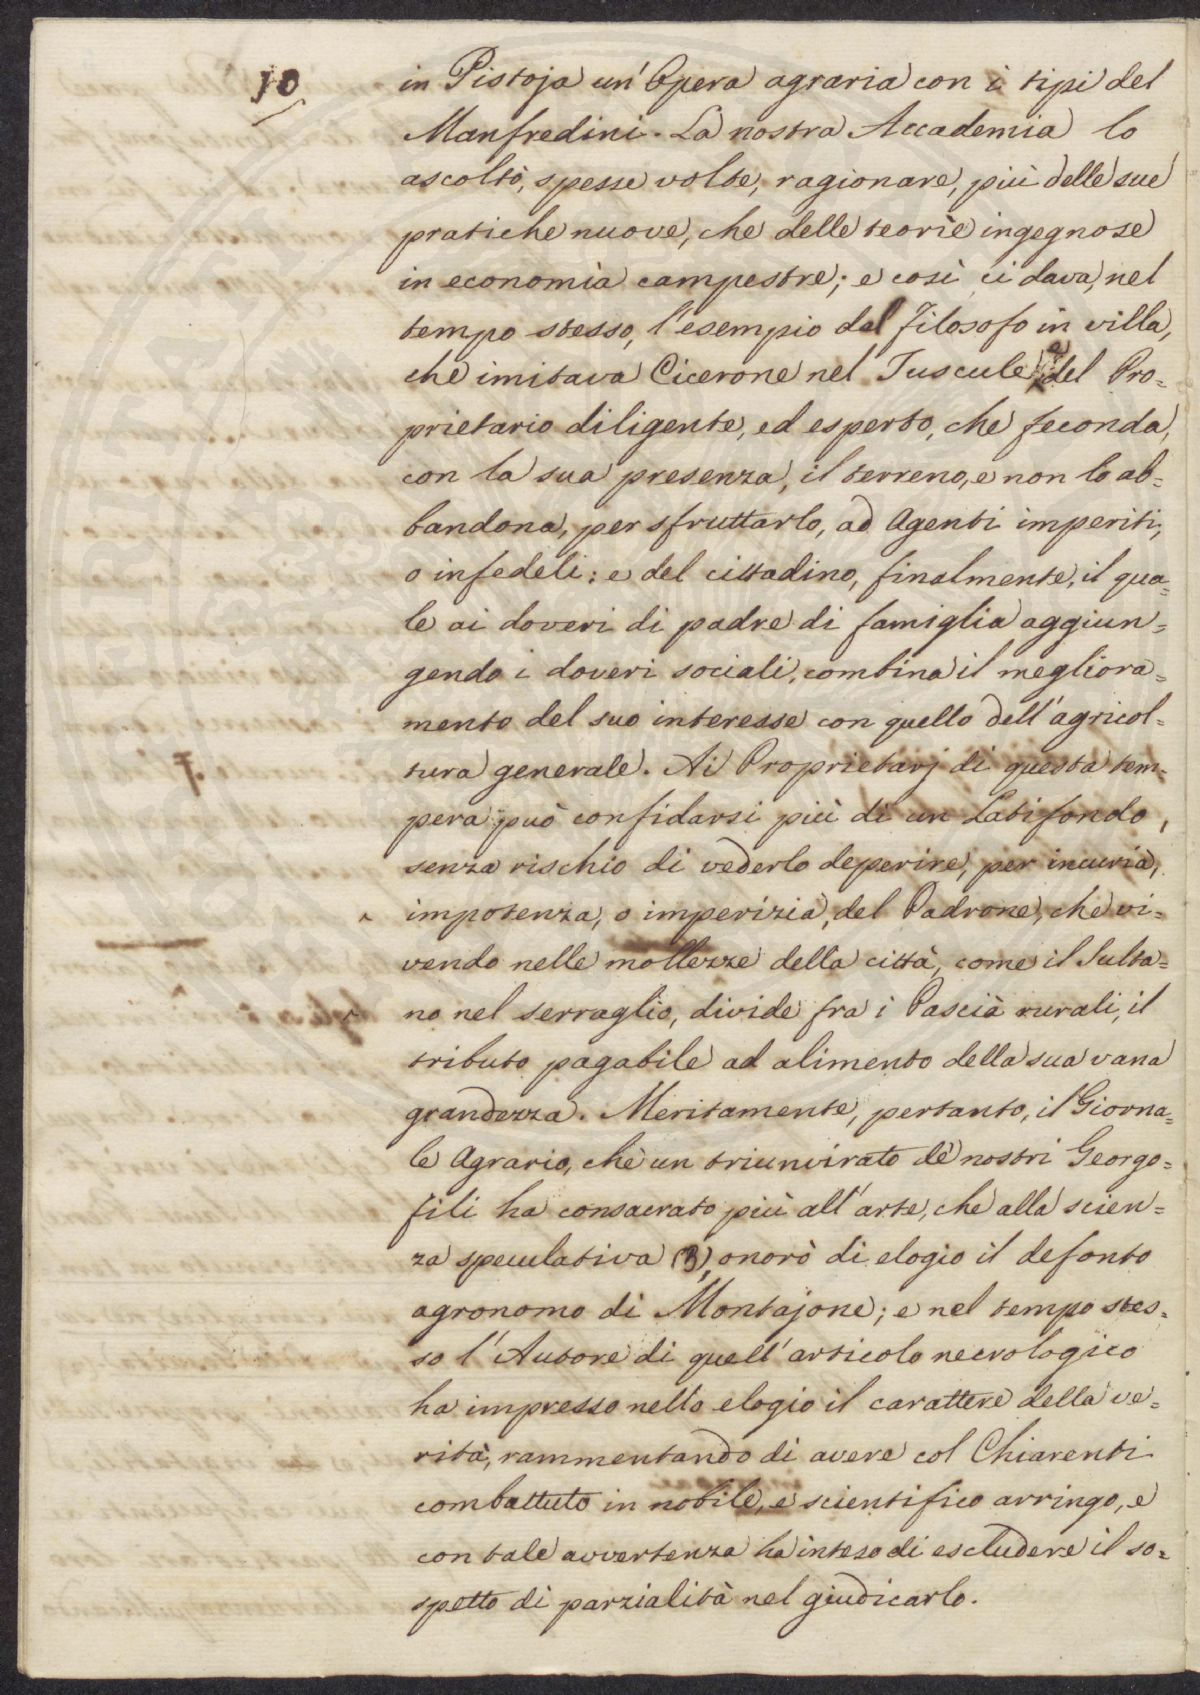 10
in Pistoja un' Opera agraria con i tipi del
Manfredini. La nostra Accademia lo
ascoltò, spesse volte, ragionare, più delle sue
pratiche nuove, che delle teorìe ingegnose
in economìa campestre; e così ci dava, nel
tempo stesso, l'esempio del filosofo in villa,
che imitava Cicerone nel Tuscule, e del Pro=
prietario diligente, ed esperto, che feconda,
con la sua presenza, il terreno, e non lo ab=
bandona, per sfruttarlo, ad Agenti imperiti,
o infedeli: e del cittadino, finalmente, il qua=
le ai doveri di padre di famiglia aggiun=
gendo i doveri sociali, combina il megliora=
mento del suo interesse con quello dell'agricol=
tura generale. Ai Proprietarj di questa tem=
pera può confidarsi più di un Latifondo,
senza rischio di vederlo deperire, per incuria,
impotenza, o imperizia, del Padrone, che vi=
vendo nelle mollezze della città, come il Sulta=
no nel serraglio, divide fra i Pascià rurali, il
tributo pagabile ad alimento della sua vana
grandezza. Meritamente, pertanto, il Giorna=
le Agrario, che un triunvirato de' nostri Georgo=
fili ha consacrato più all'arte, che alla scien=
za speculativa (3), onorò di elogio il defonto
agronomo di Montajone; e nel tempo stes=
so l'Autore di quell'articolo necrologico
ha impresso nello elogio il carattere della ve=
rità, rammentando di avere col Chiarenti
combattuto in nobile, e scientifico arringo, e
con tale avvertenza ha inteso di escludere il so=
spetto di parzialità nel giudicarlo.